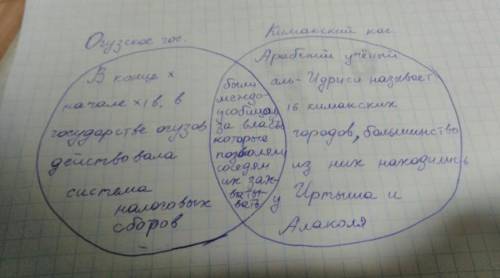 Огузское гос.
Кимакский каг.
В конце X
начале XI в, в
государстве огузов
действовала
система
налоговых
сборов
были
междо-
усобицы
за власть
которые
позволяли
соседям
их зах-
ваты-
вать
Арабский учёный
аль-Идриси называет
16 кимакских
городов, большинство
из них находились
у Иртыша и
Алаколя